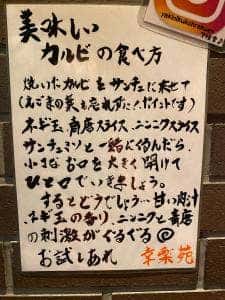 美味しい
カルビの食べ方
焼いたカルビをサンチュにのせて
(えごまの葉も忘れずに!ポイントです)
ネギ玉、青唐スライス、ニンニクスライス
サンチュミソと一緒にくるんだら、
小さなお口を大きく開けて
ひと口でいきましょう。
するとどうでしょう…甘い肉汁
ネギ玉の香り、ニンニクと青唐
の刺激がぐるぐる
お試しあれ 幸楽苑